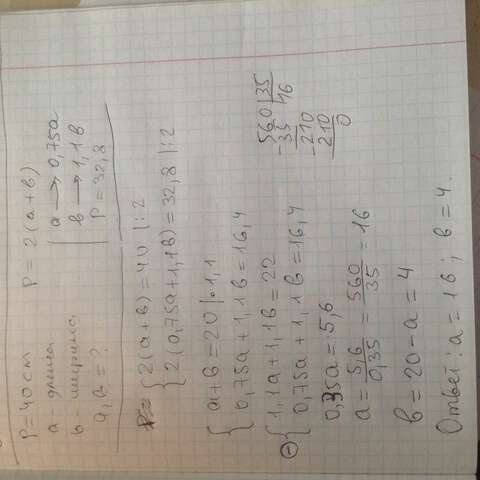 P=40см P = 2(a+в)
a - длина a → 0,75a
в - ширина в → 1,1в
a, в = ? P = 32,8
{ 2(a+в) = 40 |:2
2(0,75a+1,1в) = 32,8 |:2
{ a+в = 20 |•1,1
0,75a + 1,1в = 16,4
- { 1,1a + 1,1в = 22
0,75a + 1,1в = 16,4
0,35a = 5,6
a = 5,6/0,35 = 560/35 = 16
в = 20 - a = 4
Ответ: a = 16; в = 4.
560 | 35
- 35 16
- 210
210
0